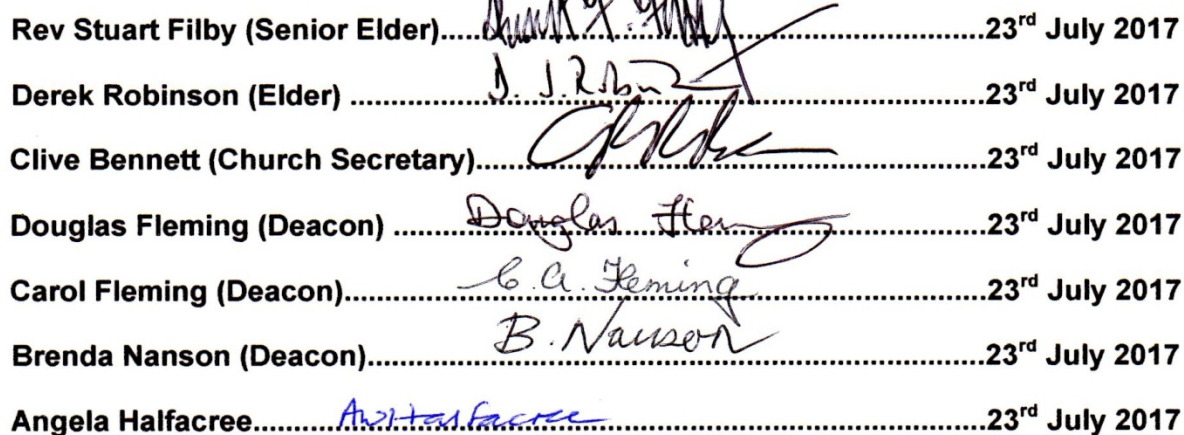 Rev Stuart Filby (Senior Elder)..... ..........23rd July 2017
Derek Robinson (Elder) .......... D. J. Robin ..........23rd July 2017
Clive Bennett (Church Secretary)..... ..........23rd July 2017
Douglas Fleming (Deacon) .......... Douglas Flem ..........23rd July 2017
Carol Fleming (Deacon).......... C. A. Fleming ..........23rd July 2017
Brenda Nanson (Deacon).......... B. Nanson ..........23rd July 2017
Angela Halfacree.......... AW Halfacree ..........23rd July 2017